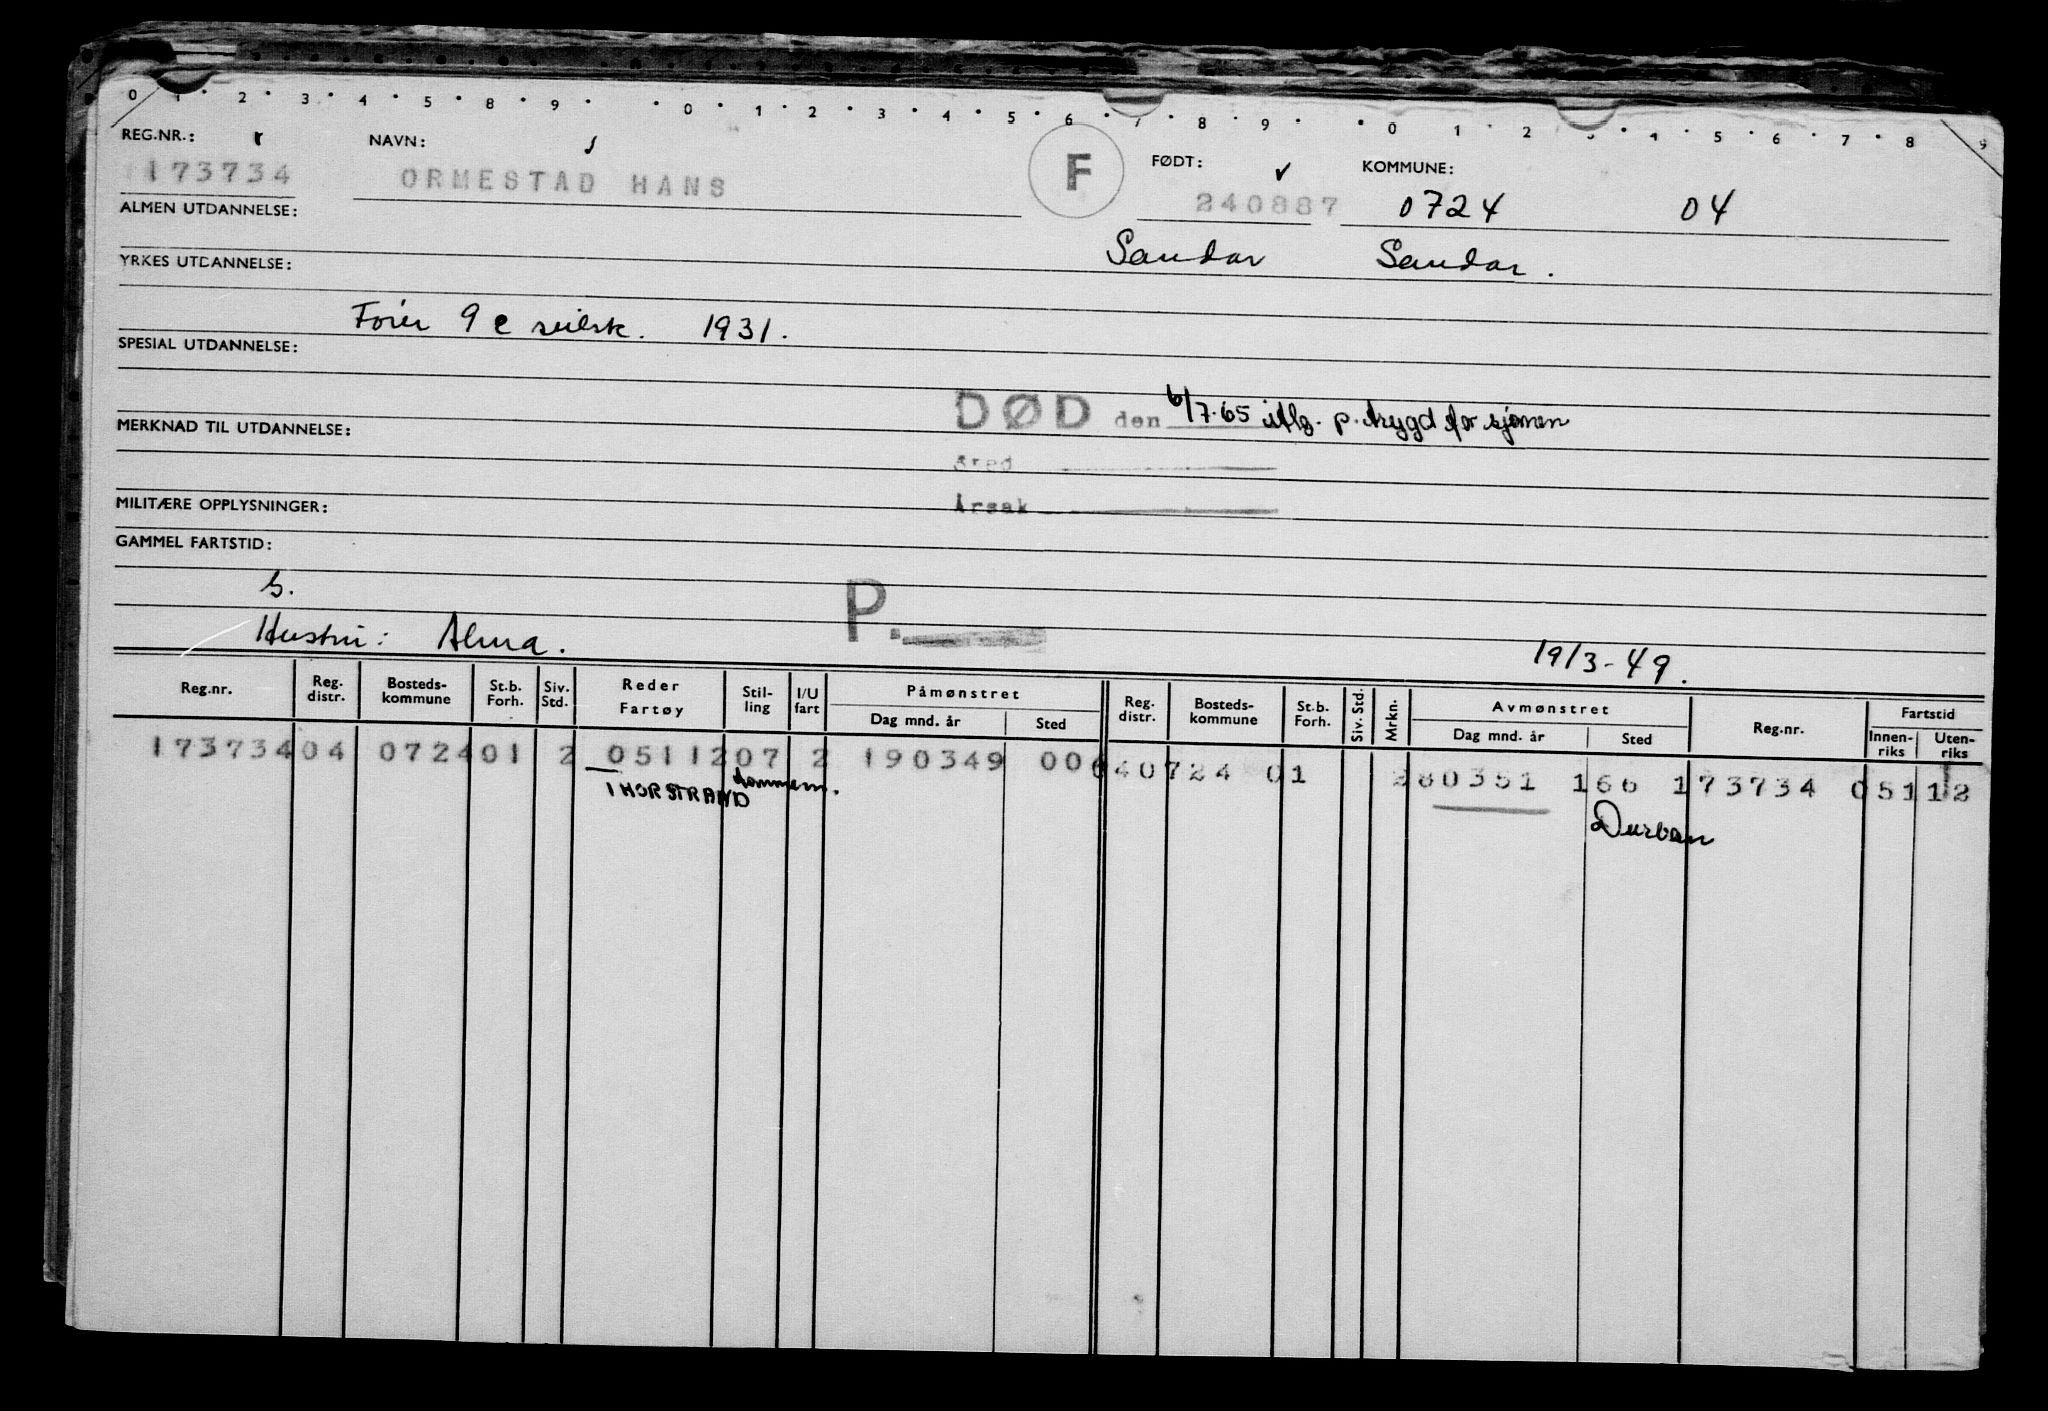 0 1 2 3 4 5 8 9 0 1 2 3 4 5 6 7 8 9 0 1 2 3 4 5 6 7 8 9
REG.NR.: NAVN: F FØDT: KOMMUNE:
173734 ORMESTAD HANS 240887 0724 04
ALMEN UTDANNELSE:
Sandar Sandar.
YRKES UTDANNELSE:
9 e seilsk. 1931.
SPESIAL UTDANNELSE:
DØD den 6/7-65 p. trygd for sjømen
MERKNAD TIL UTDANNELSE:
Sted
MILITÆRE OPPLYSNINGER:
Årsak
GAMMEL FARTSTID:
P.
Hustru: Alma.
19/3-49.
Reg.nr. Reg. distr. Bosteds-kommune St.b. Forh. Siv. Std. Reder Fartøy Stil-ling I/U fart Påmønstret Dag mnd. år Sted Reg. distr. Bosteds-kommune St.b. Forh. Siv. Std. Mrkn. Avmønstret Dag mnd. år Sted Reg.nr. Fartstid Innen-riks Uten-riks
173734 04 0724 01 2 05112 07 2 190349 006 4 0724 01 280351 166 173734 05112
THORSTRAND
Durban